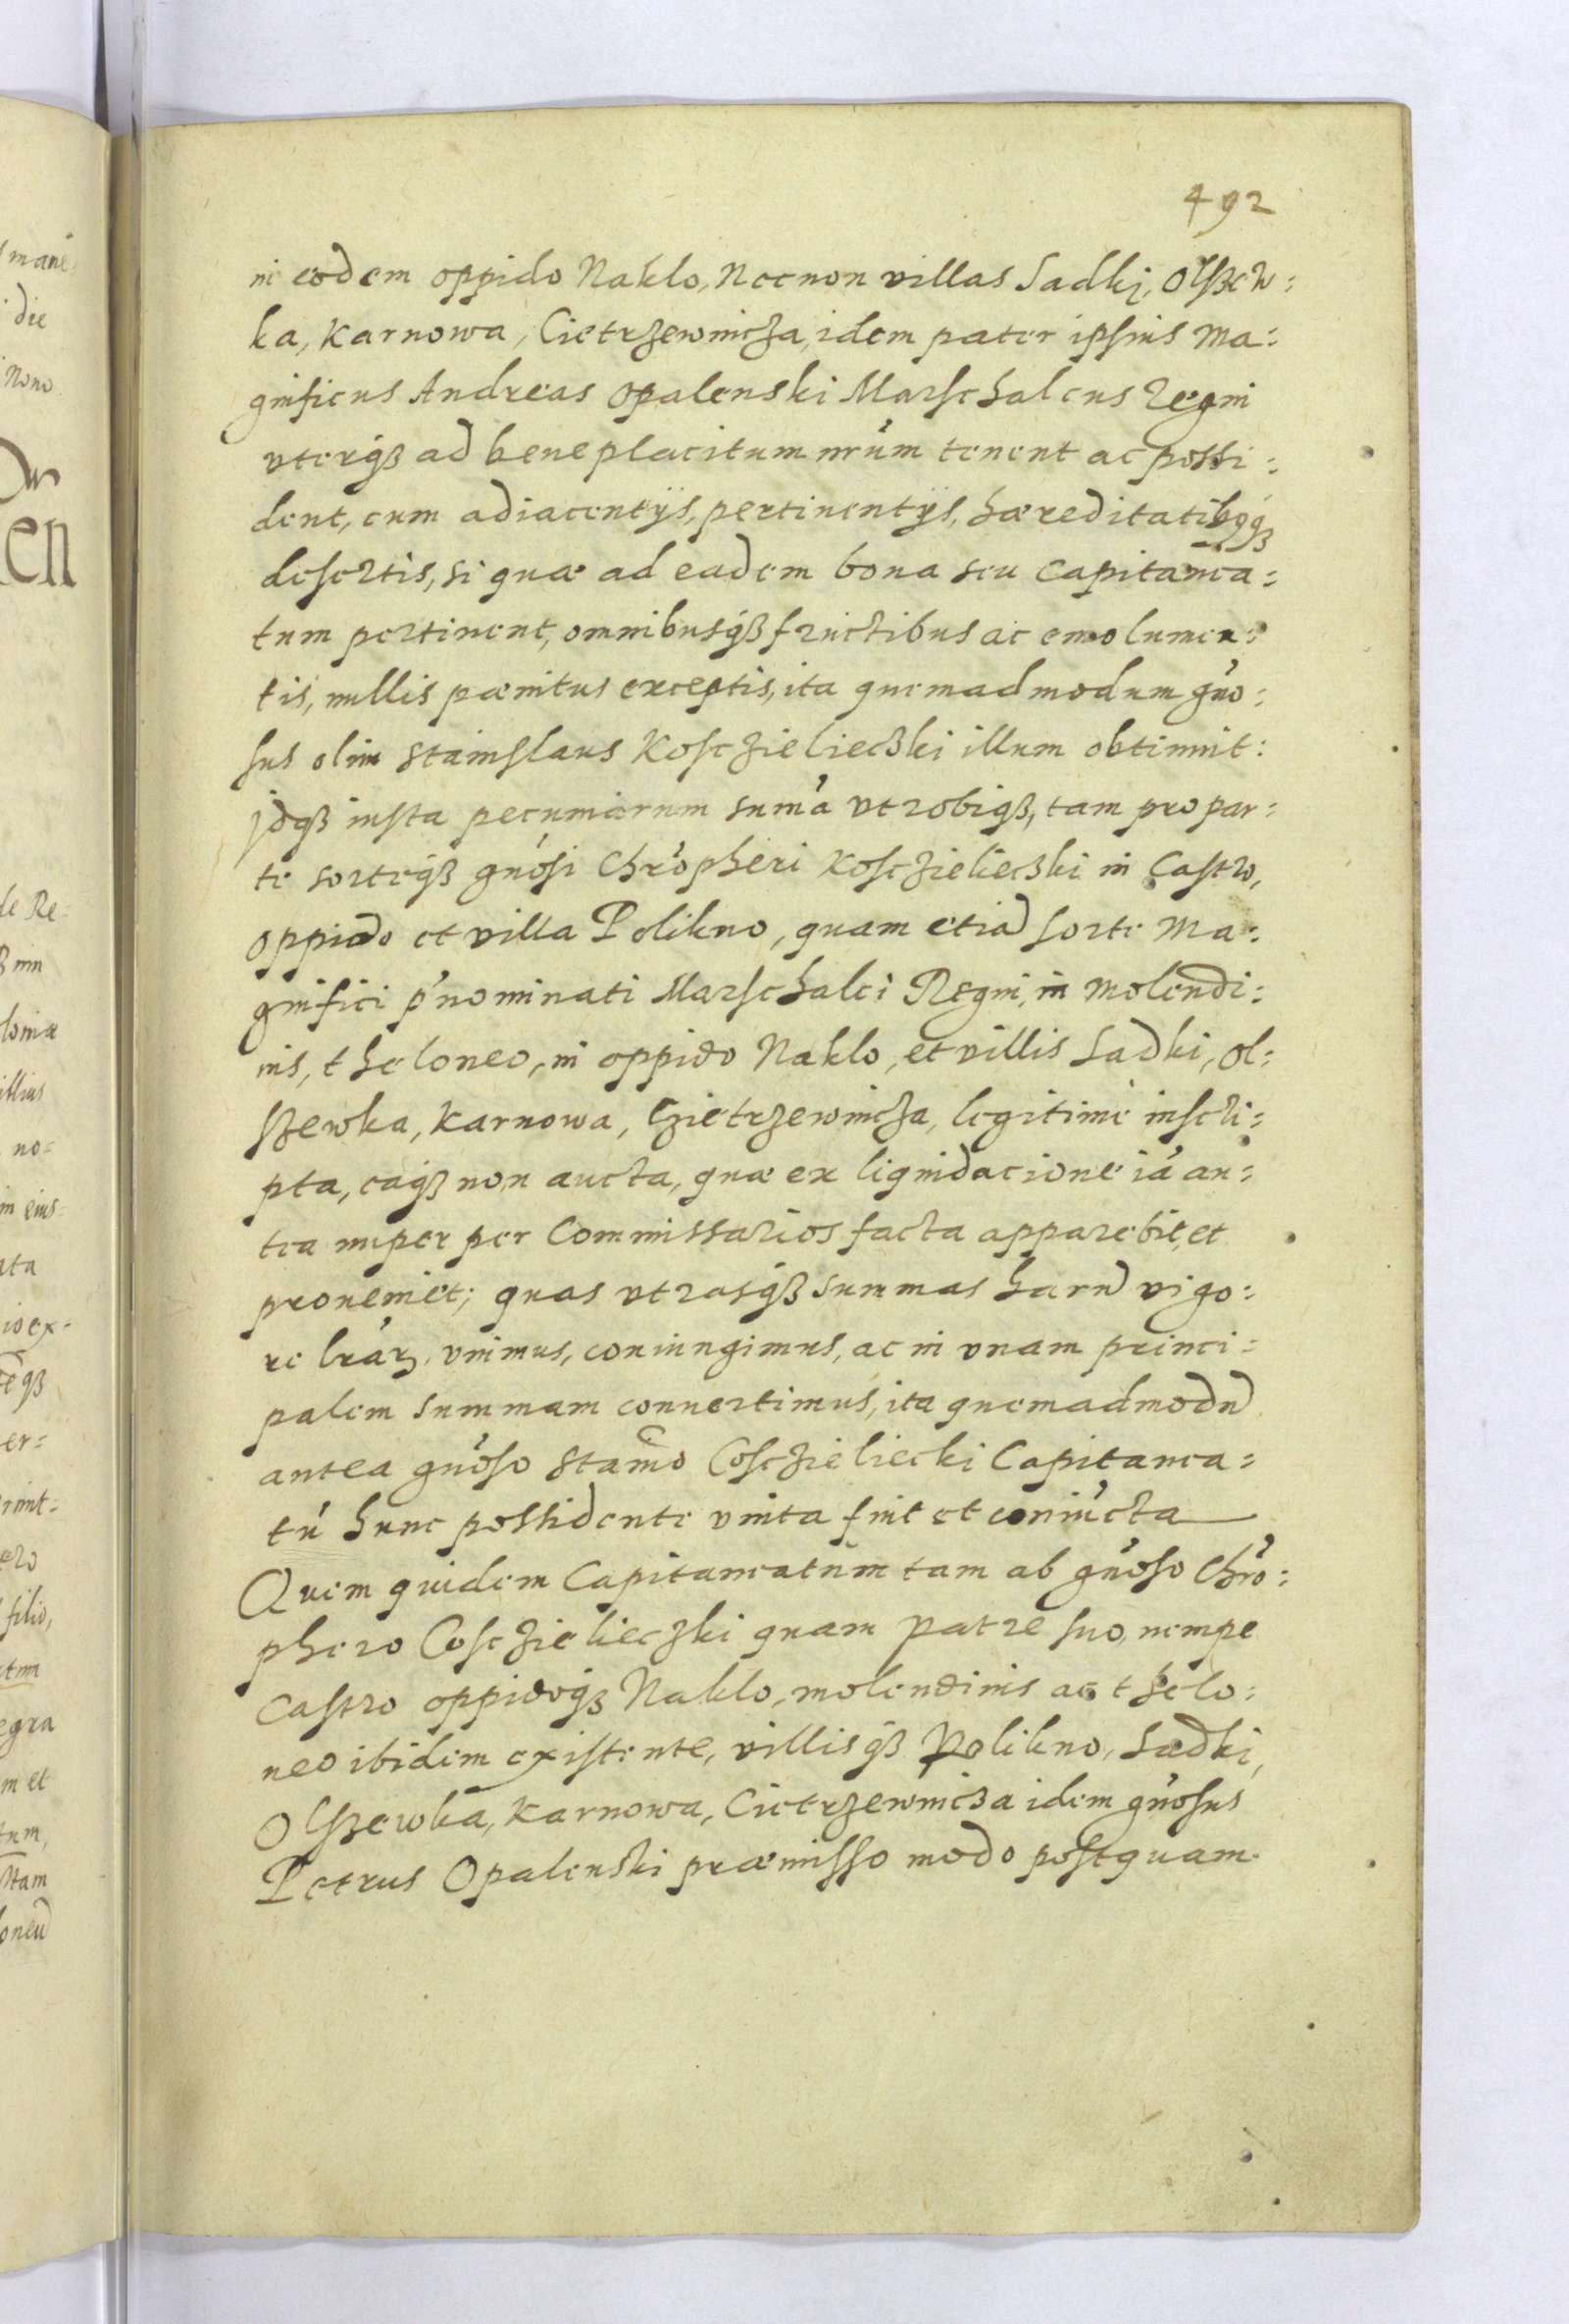 492
in eodem oppido Naklo, Necnon villas Sadki, Olszew:
ka, Karnowa, Cietrzewnicza, idem pater ipsius Ma:
gnificus Andreas Opalenski Marschalcus Regni
vterq3 ad beneplacitum nr̃um tenent ac possi:
dent, cum adiacentijs, pertinentijs, hæreditatibq3
desertis, si quæ ad eadem bona seu Capitanea:
tum pertinent, omnibusq3 fructibus ac emolumen:
tis, nullis pænitus exceptis, ita quemadmodum gn̄o:
sus olim Stanislaus Kosczielieczki illum obtinuit:
jdq3 iusta pecuniarum sum̄a vtrobiq3, tam pro par:
te sorteq3 gn̄osi Chrõpheri Kosczielieczki in Castro,
oppido et villa Polikno, quam etiã sorte Ma:
gnifici p̃nominati Marschalci Regni, in molendi:
nis, theloneo, in oppido Naklo, et villis Sadki, Ol:
szewka, Karnowa, Czietrzewnicza, legitime inscri:
pta, eaq3 non aucta, quæ ex liquidacione iã an:
tea nuper per Commissarios facta apparebit, et
proueniet; quas vtrasq3 summas harũ vigo:
re lr̃ar3 vnimus, coniungimus, ac in vnam princi:
palem summam conuertimus, ita quemadmodũ
antea gn̄oso Stan̄io Cosczieliecki Capitanea:
tũ hunc possidente vnita fuit et coniũcta
Quem quidem Capitaneatum tam ab gn̄oso Chrõ:
phero Cosczielieczki quam patre suo, nempe
Castro oppidoq3 Naklo, molendinis ac thelo:
neo ibidem existente, villisq3 Polikno, Sadki,
Olszewka, Karnowa, Cietrzewnicza idem gn̄osus
Petrus Opalenski præmisso modo postquam